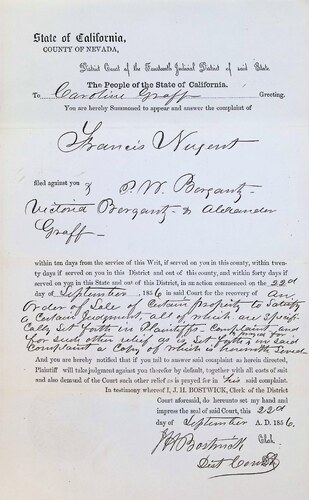 State of California,
COUNTY OF NEVADA,
District Court of the Fourteenth Judicial District of said State.
The People of the State of California.
To Caroline Graff Greeting.
You are hereby Summoned to appear and answer the complaint of
Francis Nugent
filed against you & P. W. Bergantz
Victoria Bergantz & Alexander
Graff
within ten days from the service of this Writ, if served on you in this county, within twen-
ty days if served on you in this District and out of this county, and within forty days if
served on you in this State and out of this District, in an action commenced on the 22d
day of September, 1856 in said Court for the recovery of an
Order of Sale of Certain property to Satisfy
a Certain Judgment, all of which are Specifi-
cally Set forth in Plaintiffs Complaint, and
for such other relief as is Set forth in said
Complaint a Copy of which is herewith Served
And you are hereby notified that if you fail to answer said complaint as herein directed,
Plaintiff will take judgment against you therefor by default, together with all costs of suit
and also demand of the Court such other relief as is prayed for in his said complaint.
In testimony whereof I, J. H. BOSTWICK, Clerk of the District
Court aforesaid, do hereunto set my hand and
impress the seal of said Court, this 22d
day of September A. D. 1856.
J H Bostwick Clerk.
Dist Court